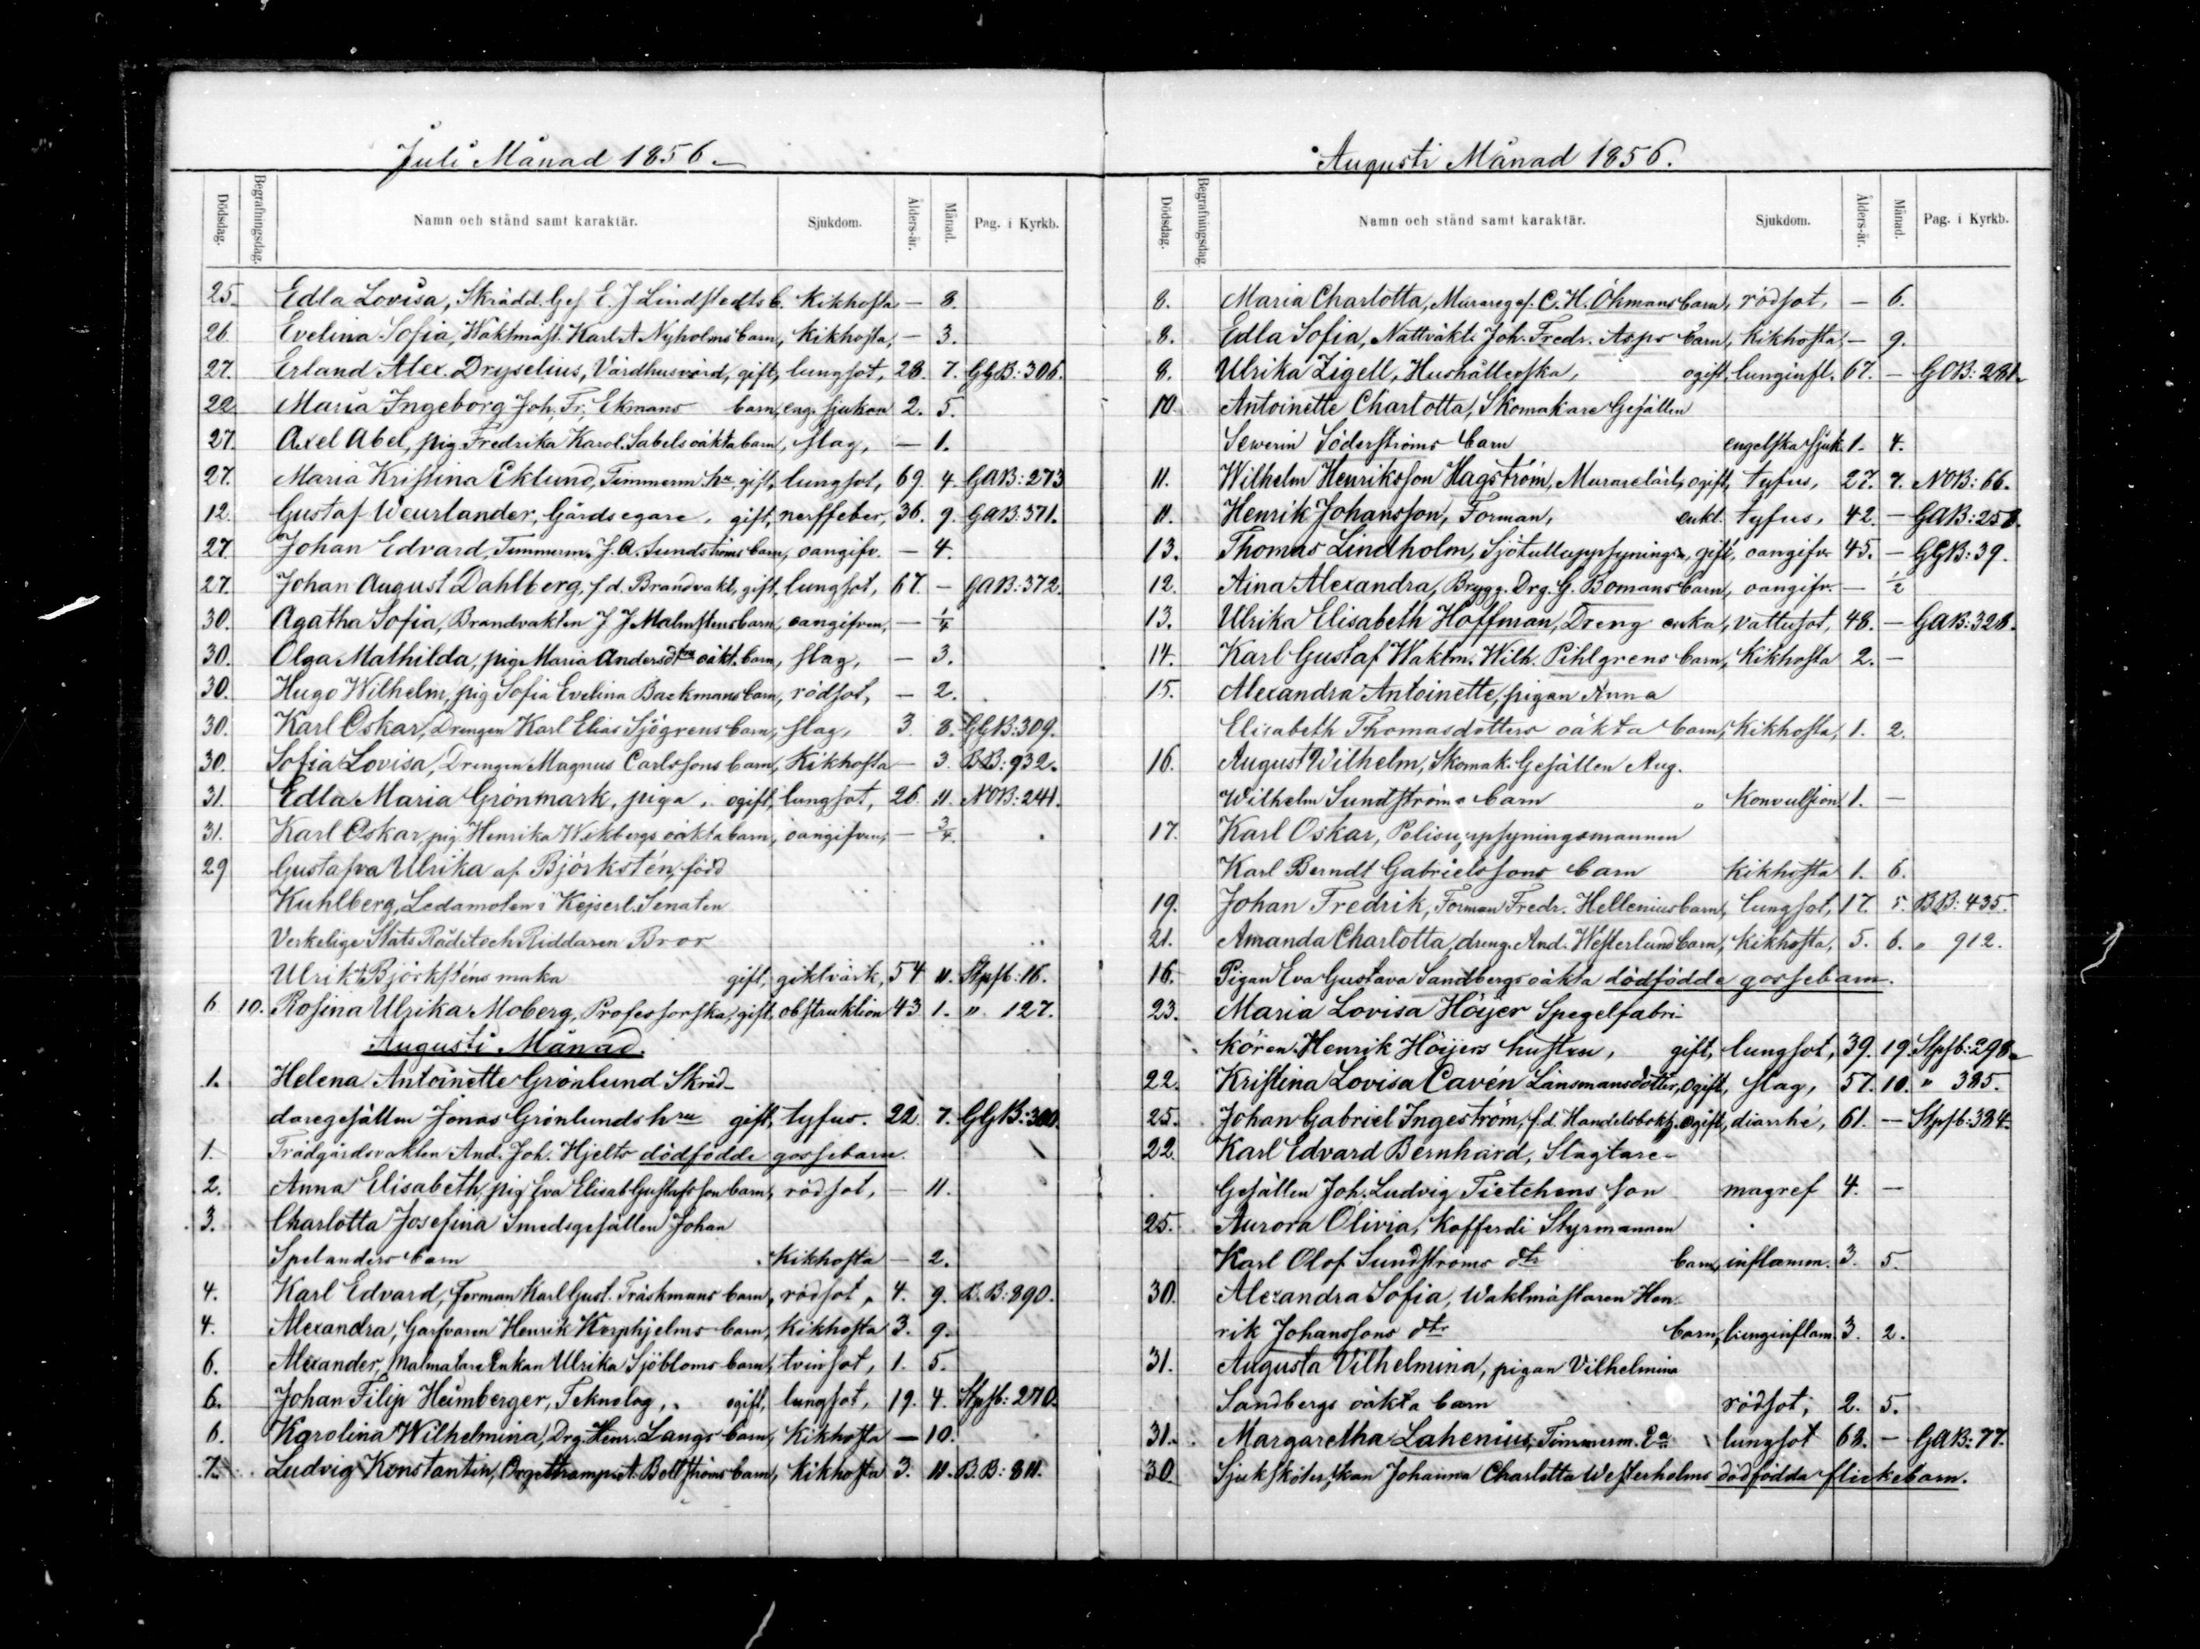 Juli Månad 1856
Dödsdag. Begrafningsdag. Namn och stånd samt karaktär. Sjukdom. Ålders-år. Månad. Pag. i Kyrkb.
25. Edla Lovisa, Skrädd. Ges E. J Lindstedts b. kikhosta — 8.
26. Evelina Sofia, Waktmäst. Karl A Nyholms barn, kikhosta, — 3.
27. Erland Alex. Dryselius, Värdhusvärd, gift, lungsot, 28. 7. GGB: 306.
22. Maria Ingeborg Joh. Fr. Ekmans barn, eng. sjukan 2. 5.
27. Axel Abel, pig Fredrika Karol. Sabels oäkta barn, slag, — 1.
27. Maria Kristina Eklund, Timmerm. hu, gift, lungsot, 69. 4. GAB: 273
12. Gustaf Weurlander, Gårdsegare, gift, nerffeber, 36. 9. GAB: 371.
27. Johan Edvard, Timmerm. J. A. Sundströms barn, oangifv. — 4.
27. Johan August Dahlberg, f.d. Brandvakt, gift, lungsot, 67. — GAB: 372.
30. Agatha Sofia, Brandvakten J J Malmstens barn, oangifven, — ¼
30. Olga Mathilda, pig. Maria Andersdtrs oäkt. barn, slag, — 3.
30. Hugo Wilhelm, pig Sofia Evelina Backmans barn, rödsot, — 2.
30. Karl Oskar, Drengen Karl Elias Sjögrens barn, slag, 3 8. GGB: 309.
30. Sofia Lovisa, Drengen Magnus Carlssons barn, Kikhosta — 3. BB: 932.
31. Edla Maria Grönmark, piga, ogift, lungsot, 26. 11. NOB: 241.
31. Karl Oskar, pig. Henrika Wikbergs oäkta barn, oangifven, — ¾.
29 Gustafva Ulrika af Björkstén, född
Kuhlberg, Ledamoten i Kejserl. Senaten
Verkelige Stats Rådet och Riddaren Bror
Ulrik Björksténs maka gift, giktvärk, 54 11. Stpsb: 16.
6 10. Rosina Ulrika Moberg, Professorska, gift, obstruktion 43 1. " 127.
Augusti Månad.
1. Helena Antoinette Grönlund Skräd-
daregesällen Jonas Grönlunds hru gift, tyfus. 22. 7. GGB: 300.
1. Trädgårdsvakten And. Joh. Hjelts dödfödde gossebarn.
2. Anna Elisabeth, pig Eva Elisab Gustafsson barn, rödsot, — 11.
3. Charlotta Josefina Smedsgesällen Johan
Spelanders barn Kikhosta — 2.
4. Karl Edvard, Forman Karl Gust. Träskmans barn, rödsot, 4. 9. B.B: 890.
4. Alexandra, Garfvaren Henrik Korphjelms barn, Kikhosta 3. 9.
6. Alexander, Enkan Ulrika Sjöbloms barn, tvinsot, 1. 5.
6. Johan Filip Heimberger, Teknolog, ogift, lungsot, 19. 4. Stpsb: 270.
6. Karolina Wilhelmina, Drg. Henr. Langs barn, Kikhosta — 10.
7. Ludvig Konstantin, A. Boltströms barn, Kikhosta 3. 11. B.B: 811.
Augusti Månad 1856.
Dödsdag. Begrafningsdag. Namn och stånd samt karaktär. Sjukdom. Ålders-år. Månad. Pag. i Kyrkb.
8. Maria Charlotta, Murareges. C. H. Öhmans barn, rödsot, — 6.
8. Edla Sofia, Nattväkt. Joh. Fredr. Asps barn, Kikhosta, — 9.
8. Ulrika Zigell, Hushållerska, ogift, lunginfl. 67. — GOB: 281.
10. Antoinette Charlotta, Skomakare Gesällen
Sewerin Söderströms barn engelska sjuk. 1. 4.
11. Wilhelm Henriksson Hagström, Murarelärl, ogift, tyfus, 27. 7. NOB: 66.
11. Henrik Johansson, Forman, enkl. tyfus, 42. — GAB: 258.
13. Thomas Lindholm, Sjötulluppsynings, gift, oangifv. 45. — GGB: 39.
12. Aina Alexandra, Brygg. Drg. G. Bomans barn, oangifv. — ½
13. Ulrika Elisabeth Hoffman, Dreng enka, vattusot, 48. — GAB: 328.
14. Karl Gustaf Waktm. Wilh. Pihlgrens barn, Kikhosta 2. —
15. Alexandra Antoinette, pigan Anna
Elisabeth Thomasdotters oäkta barn, Kikhosta, 1. 2.
16. August Wilhelm, Skomak. Gesällen Aug.
Wilhelm Sundströms barn " Konvulsion 1. —
17. Karl Oskar, Polisuppsyningsmannen
Karl Berndt Gabrielssons barn Kikhosta 1. 6.
19. Johan Fredrik, Forman Fredr. Hellenius barn, lungsot, 17. 5. BB: 435.
21. Amanda Charlotta, dreng. And. Westerlunds barn, Kikhosta, 5. 6. " 912.
16. Pigan Eva Gustava Sandbergs oäkta dödfödde gossebarn.
23. Maria Lovisa Höijer Spegelfabri-
kören Henrik Höijers hustru, gift, lungsot, 39. 19. Stpsb: 298.
22. Kristina Lovisa Cavén Länsmansdotter, ogift, slag, 57. 10. " 385.
25. Johan Gabriel Ingeström, f.d. Handelsbokh. ogift, diarrhé, 61. — Stpsb: 384.
22. Karl Edvard Bernhard, Slagtare-
Gesällen Joh. Ludvig Tietchens son magref 4. —
25. Aurora Olivia, Kofferdi Styrmannen
Karl Olof Sundströms dtr barn, inflamm. 3. 5.
30. Alexandra Sofia, Waktmästaren Hen-
rik Johanssons dtr barn, lunginflam. 3. 2.
31. Augusta Vilhelmina, pigan Vilhelmina
Sandbergs oäkta barn rödsot, 2. 5.
31. Margaretha Lahenius, Timmerm. Ea lungsot 68. — GAB: 77.
30. Sjuksköterskan Johanna Charlotta Westerholms dödfödda flickebarn.